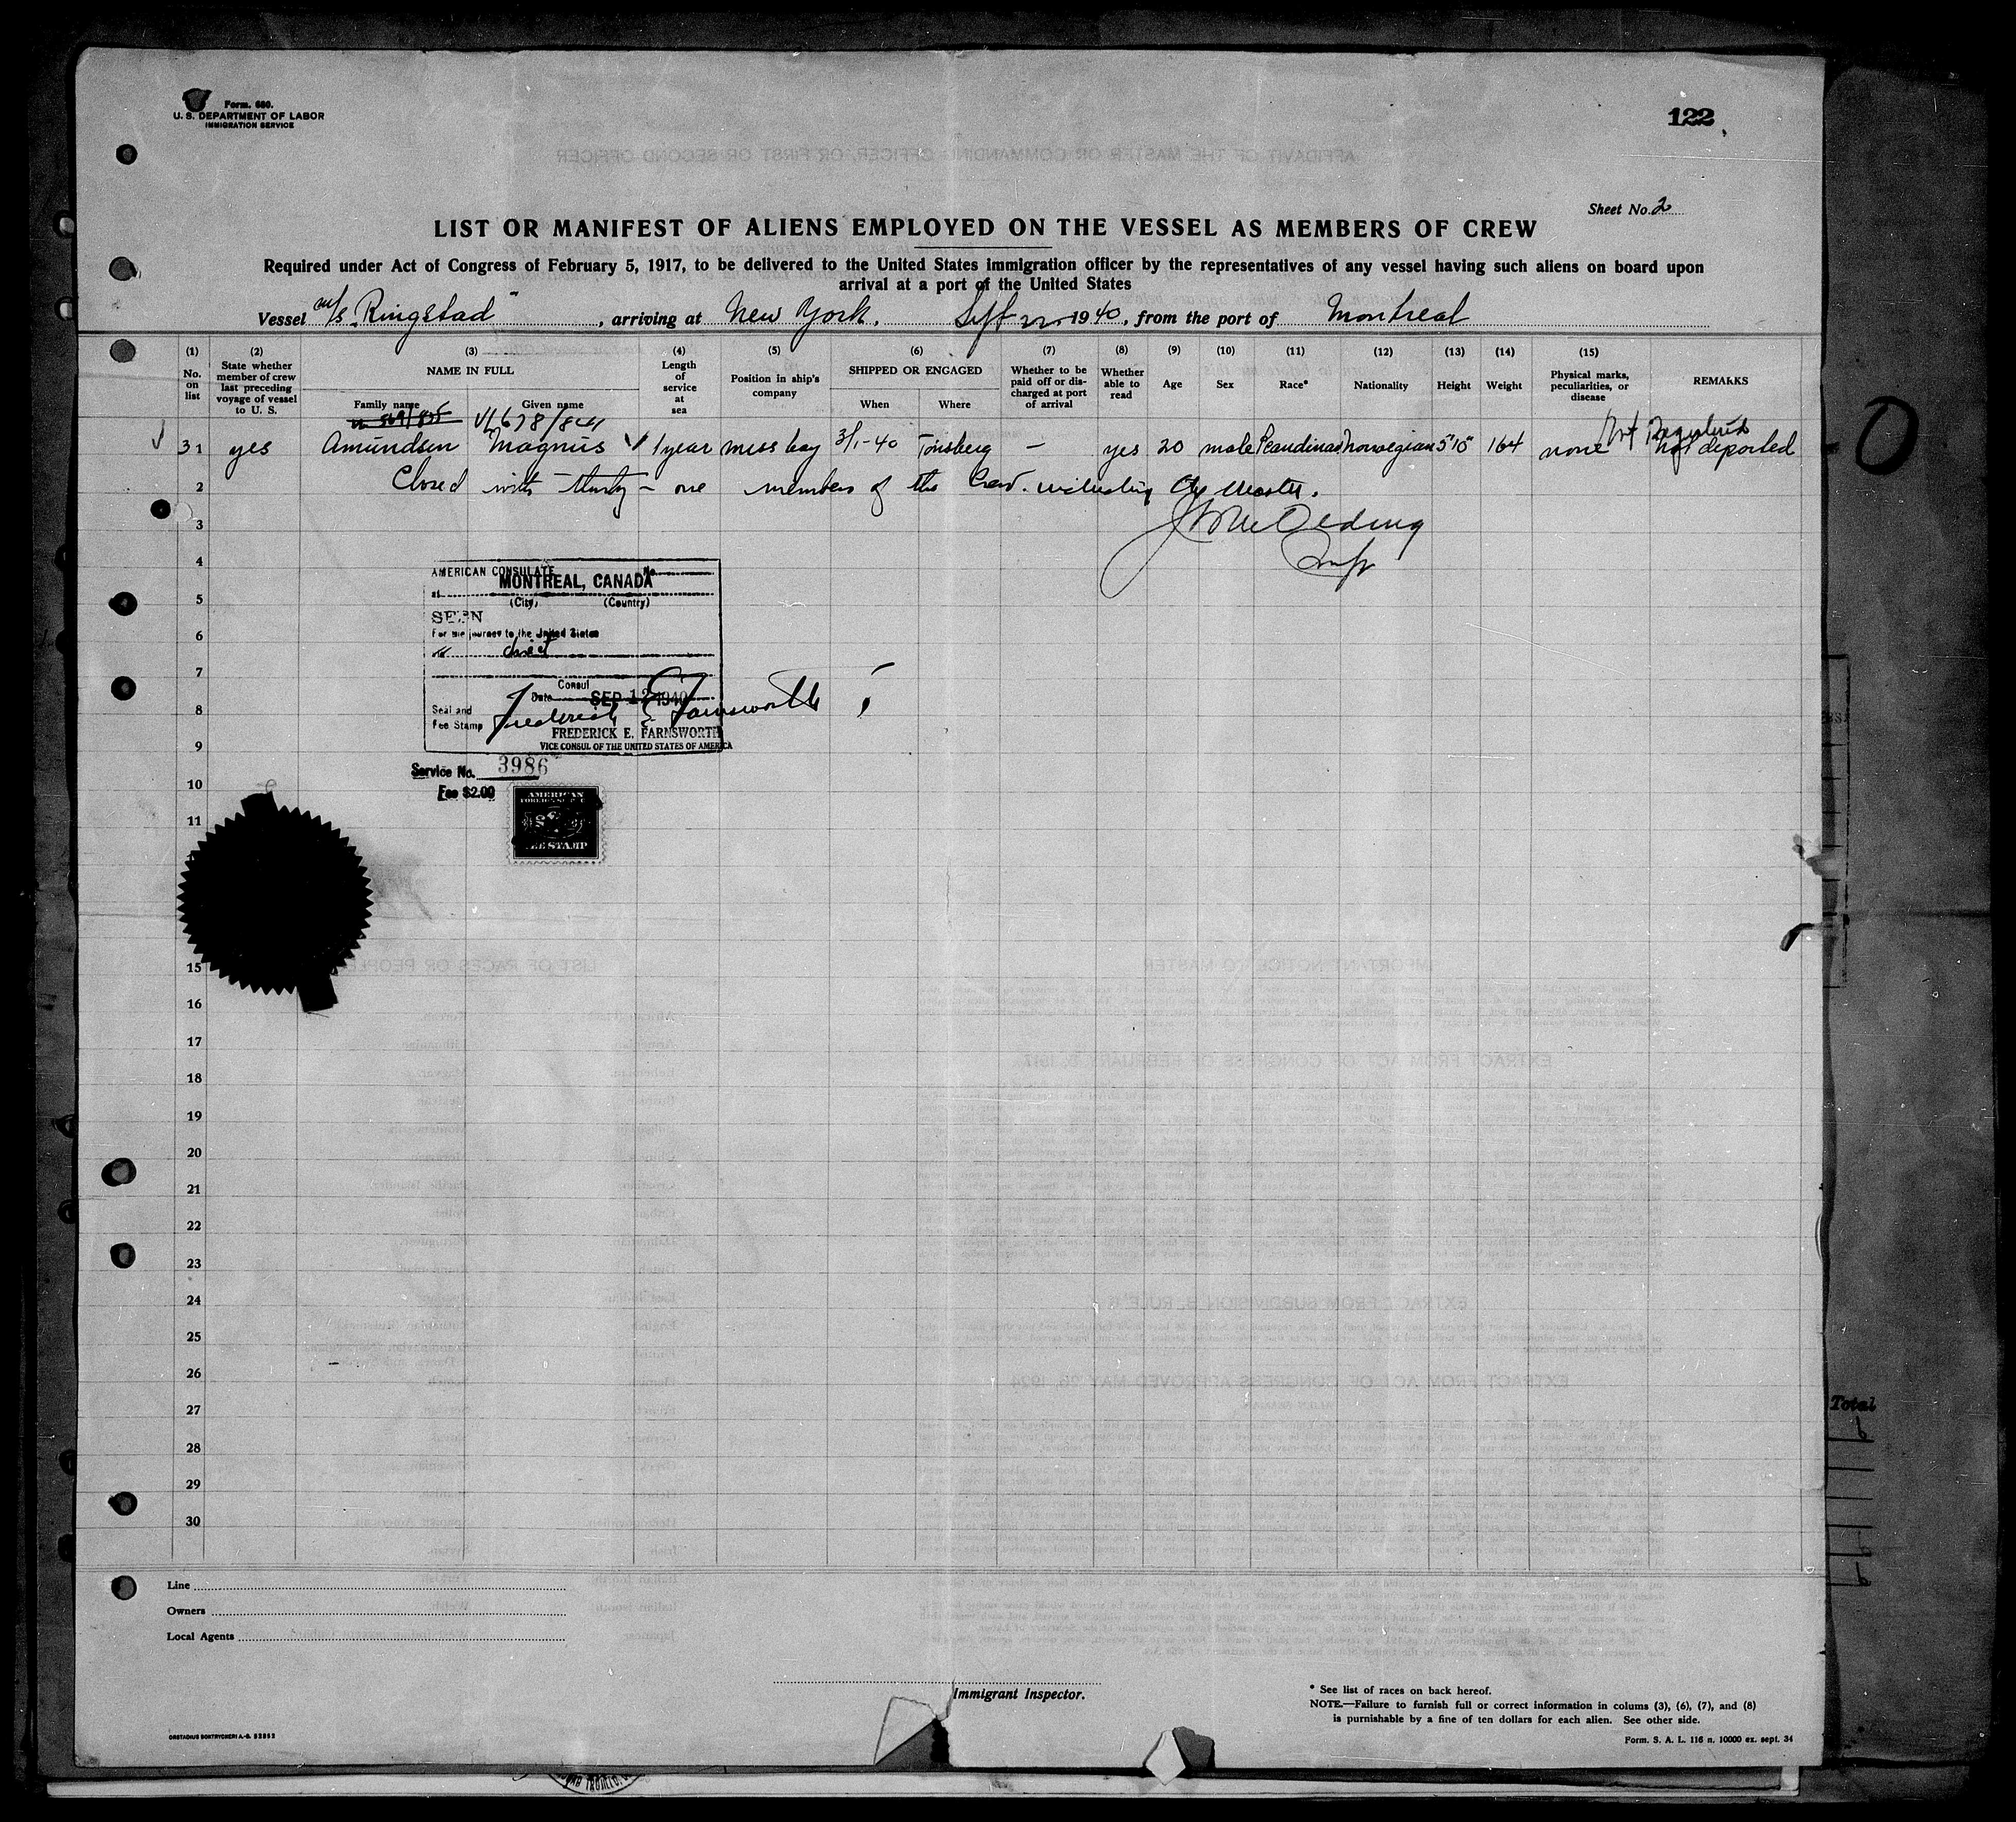 Form. 680.
U. S. DEPARTMENT OF LABOR
IMMIGRATION SERVICE
122
Sheet No. 2
LIST OR MANIFEST OF ALIENS EMPLOYED ON THE VESSEL AS MEMBERS OF CREW
Required under Act of Congress of February 5, 1917, to be delivered to the United States immigration officer by the representatives of any vessel having such aliens on board upon
arrival at a port of the United States
Vessel m/s "Ringstad", arriving at New York, Sept 22 1940, from the port of Montreal
(1) (2) (3) (4) (5) (6) (7) (8) (9) (10) (11) (12) (13) (14) (15)
No. on list
State whether member of crew last preceding voyage of vessel to U. S.
NAME IN FULL
Family name
Given name
Length of service at sea
Position in ship's company
SHIPPED OR ENGAGED
When
Where
Whether to be paid off or discharged at port of arrival
Whether able to read
Age
Sex
Race*
Nationality
Height
Weight
Physical marks, peculiarities, or disease
REMARKS
VL678/844
31 yes Amundsen Magnus 1 year mess boy 3/1-40 Tönsberg - yes 20 male Scandinav Norwegian 5'10" 164 none not deported
2 Closed with thirty-one members of the Crew including the Master.
3
4
5
6
7
8
9
10
11
15
16
17
18
19
20
21
22
23
24
25
26
27
28
29
30
AMERICAN CONSULATE No.
at MONTREAL, CANADA
(City) (Country)
SEEN
For the journey to the United States
direct
Consul
Date SEP 12 1940
Seal and
Fee Stamp
Frederick E Farnsworth
FREDERICK E. FARNSWORTH
VICE CONSUL OF THE UNITED STATES OF AMERICA
Service No. 3986
Fee $2.00
AMERICAN
FEE STAMP
Total
Line
Owners
Local Agents
Immigrant Inspector.
* See list of races on back hereof.
NOTE.—Failure to furnish full or correct information in colums (3), (6), (7), and (8)
is punishable by a fine of ten dollars for each alien. See other side.
Form. S. A. L. 116 n. 10000 ex. sept. 34